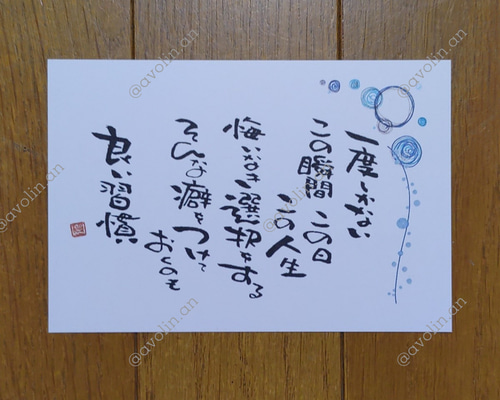 一度しかない
この瞬間 この日
この人生
悔いなき選択をする
そんな癖をつけて
おくのも
良い習慣
@avolin.an
@avolin.an
@avolin.an
@avolin.an
@avolin.an
@avolin.an
@avolin.an
@avolin.an
@avolin.an